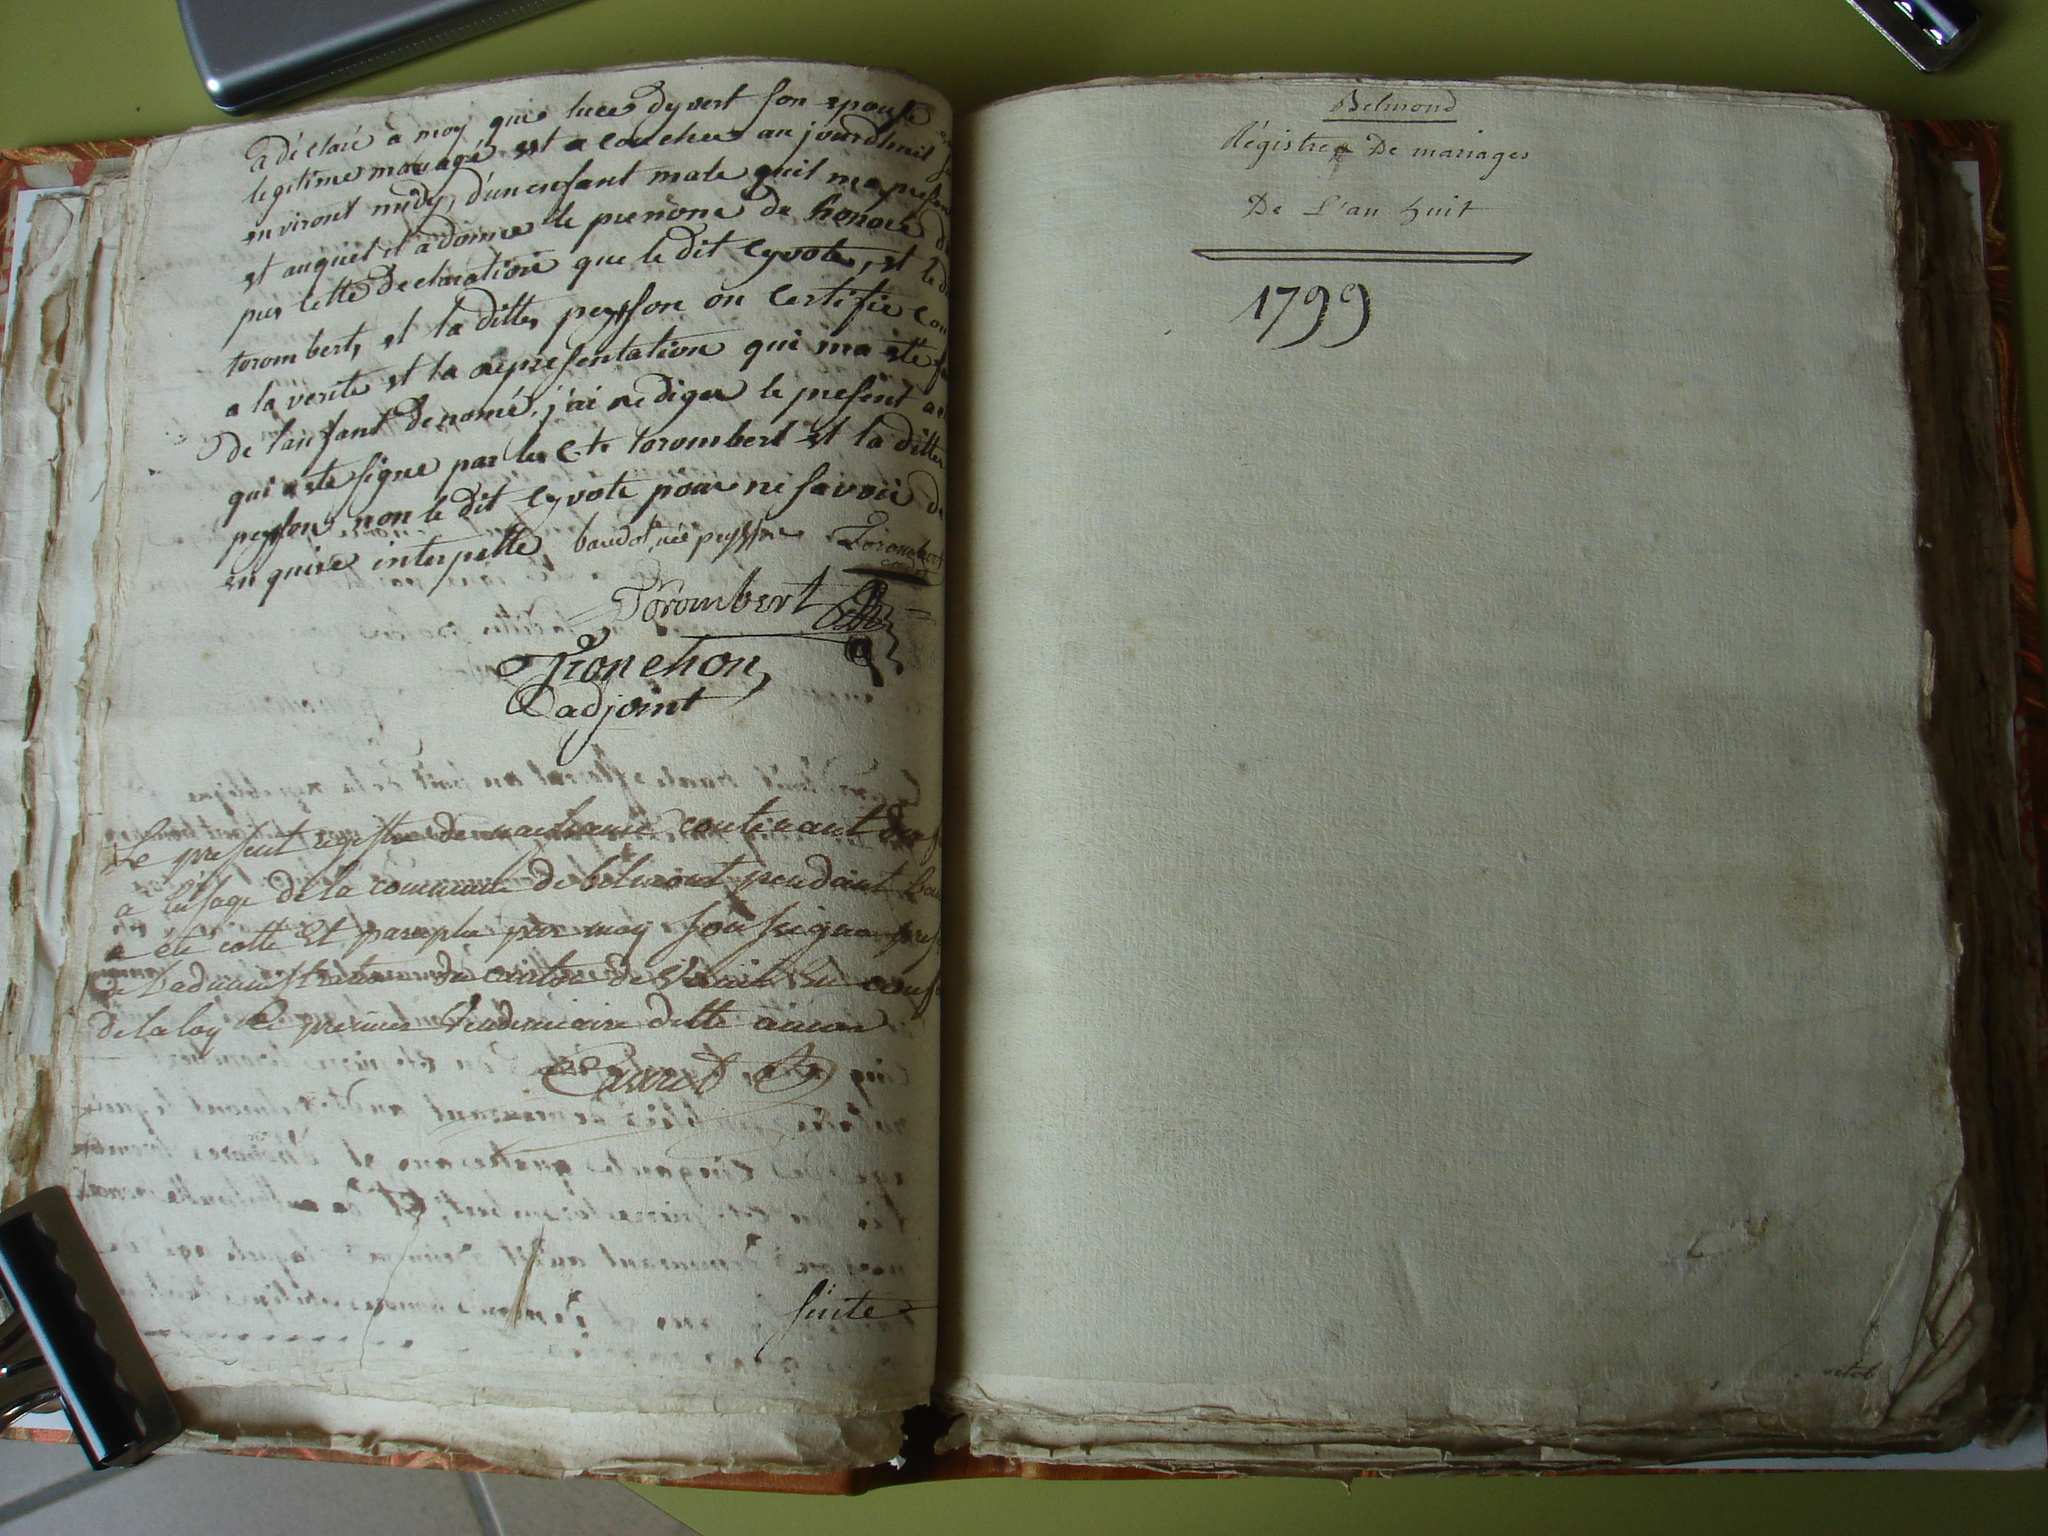 a déclaré a moy que luce dyvert son epouse
legitime mariage est a couchee au jourdhuit
environt midy, d'un enfant male quil ma presen
et auquel il a donnee le prenome de honoré
pres cette declaration que le dit eyvote, et le di
torombert, et la ditte peysson on certifie con
a la verite et la representation qui ma ete fa
De lanfant denomé, j'ai rediger le present ac
qui a ete signe par les C.te torombert et la ditte
peysson non le dit eyvote pour ne savoir de
enquire interpelle baudot née peysson Torombert
Torombert
Tronchon,
adjoint
Le present registre de naissance contenant
a l'usage de la commune de belmont pendant
a ete cotté et paraphé par moy soussigné
de l'administration du canton de
de la loy le premier Vendemiaire ditte année
suite
Belmond
Régistre De mariages
De L'an huit
1799